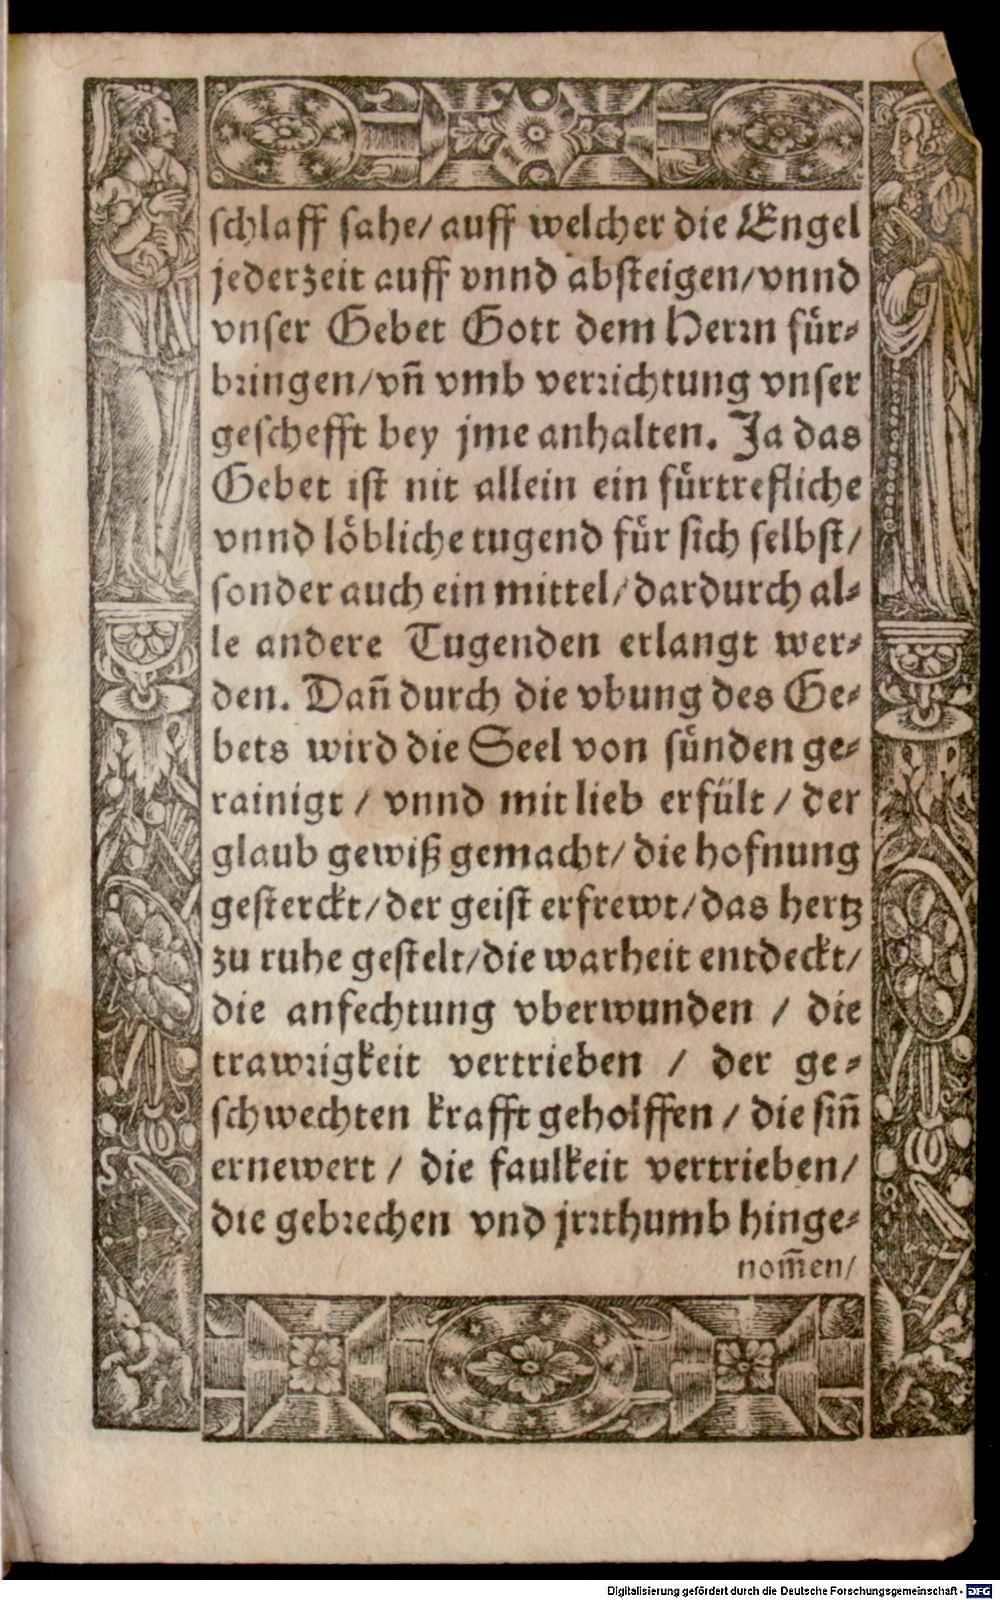 schlaff sahe/ auff welcher die Engel
jederzeit auff vnnd absteigen/vnnd
vnser Gebet Gott dem Herrn für-
bringen/vñ vmb verrichtung vnser
geschefft bey jme anhalten. Ja das
Gebet ist nit allein ein fürtrefliche
vnnd löbliche tugend für sich selbst/
sonder auch ein mittel/dardurch al-
le andere Tugenden erlangt wer-
den. Dañ durch die vbung des Ge-
bets wird die Seel von sünden ge-
rainigt / vnnd mit lieb erfült / der
glaub gewiß gemacht/ die hofnung
gesterckt/der geist erfrewt/das hertz
zu ruhe gestelt/die warheit entdeckt/
die anfechtung vberwunden / die
trawrigkeit vertrieben / der ge-
schwechten krafft geholffen / die siñ
ernewert / die faulkeit vertrieben/
die gebrechen vnd jrrthumb hinge-
nom̃en/
Digitalisierung gefördert durch die Deutsche Forschungsgemeinschaft - DFG